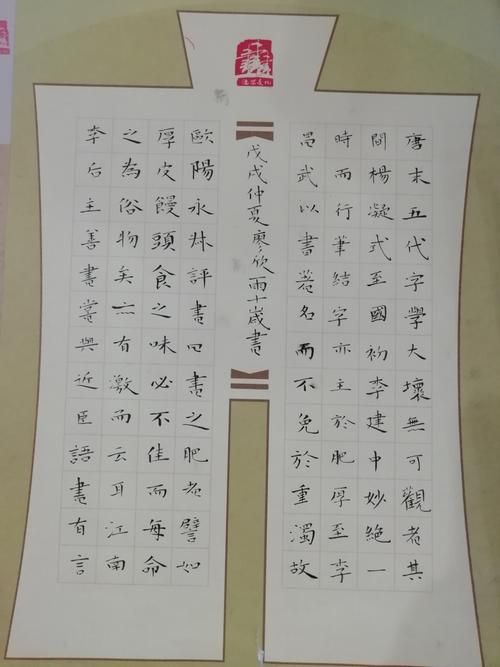 唐末五代字學大壞無可觀者其
間楊凝式至國初李建中妙絕一
時而行筆結字亦主於肥厚至李
昌武以書著名而不免於重濁故
戊戌仲夏廖欣雨十歲書
歐陽永叔評書曰書之肥者譬如
厚皮饅頭食之味必不佳而每命
之為俗物矣亦有激而云耳江南
李后主善書嘗與近臣語書有言